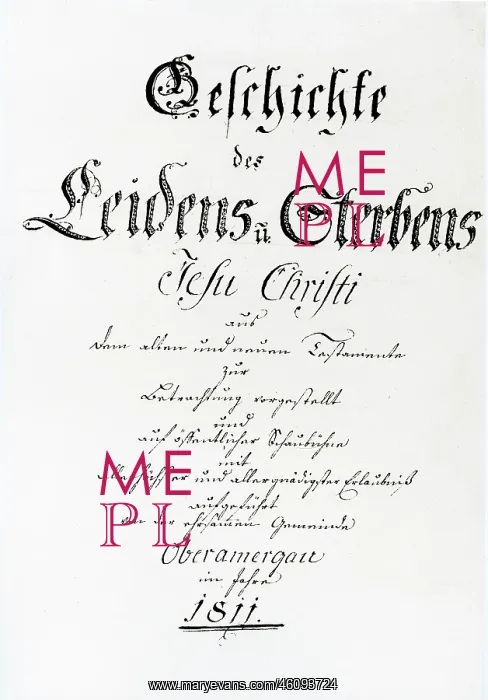 Geschichte
des
Leidens u. Sterbens
Jesu Christi
aus
dem alten und neuen Testamente
zur
Betrachtung vorgestellt
und
auf öffentlicher Schaubühne
mit
allerhöchster und allergnädigster Erlaubniß
aufgeführt
von der ehrsamen Gemeinde
Oberamergau
im Jahre
1811.
ME
PL
ME
PL
www.maryevans.com/46093724